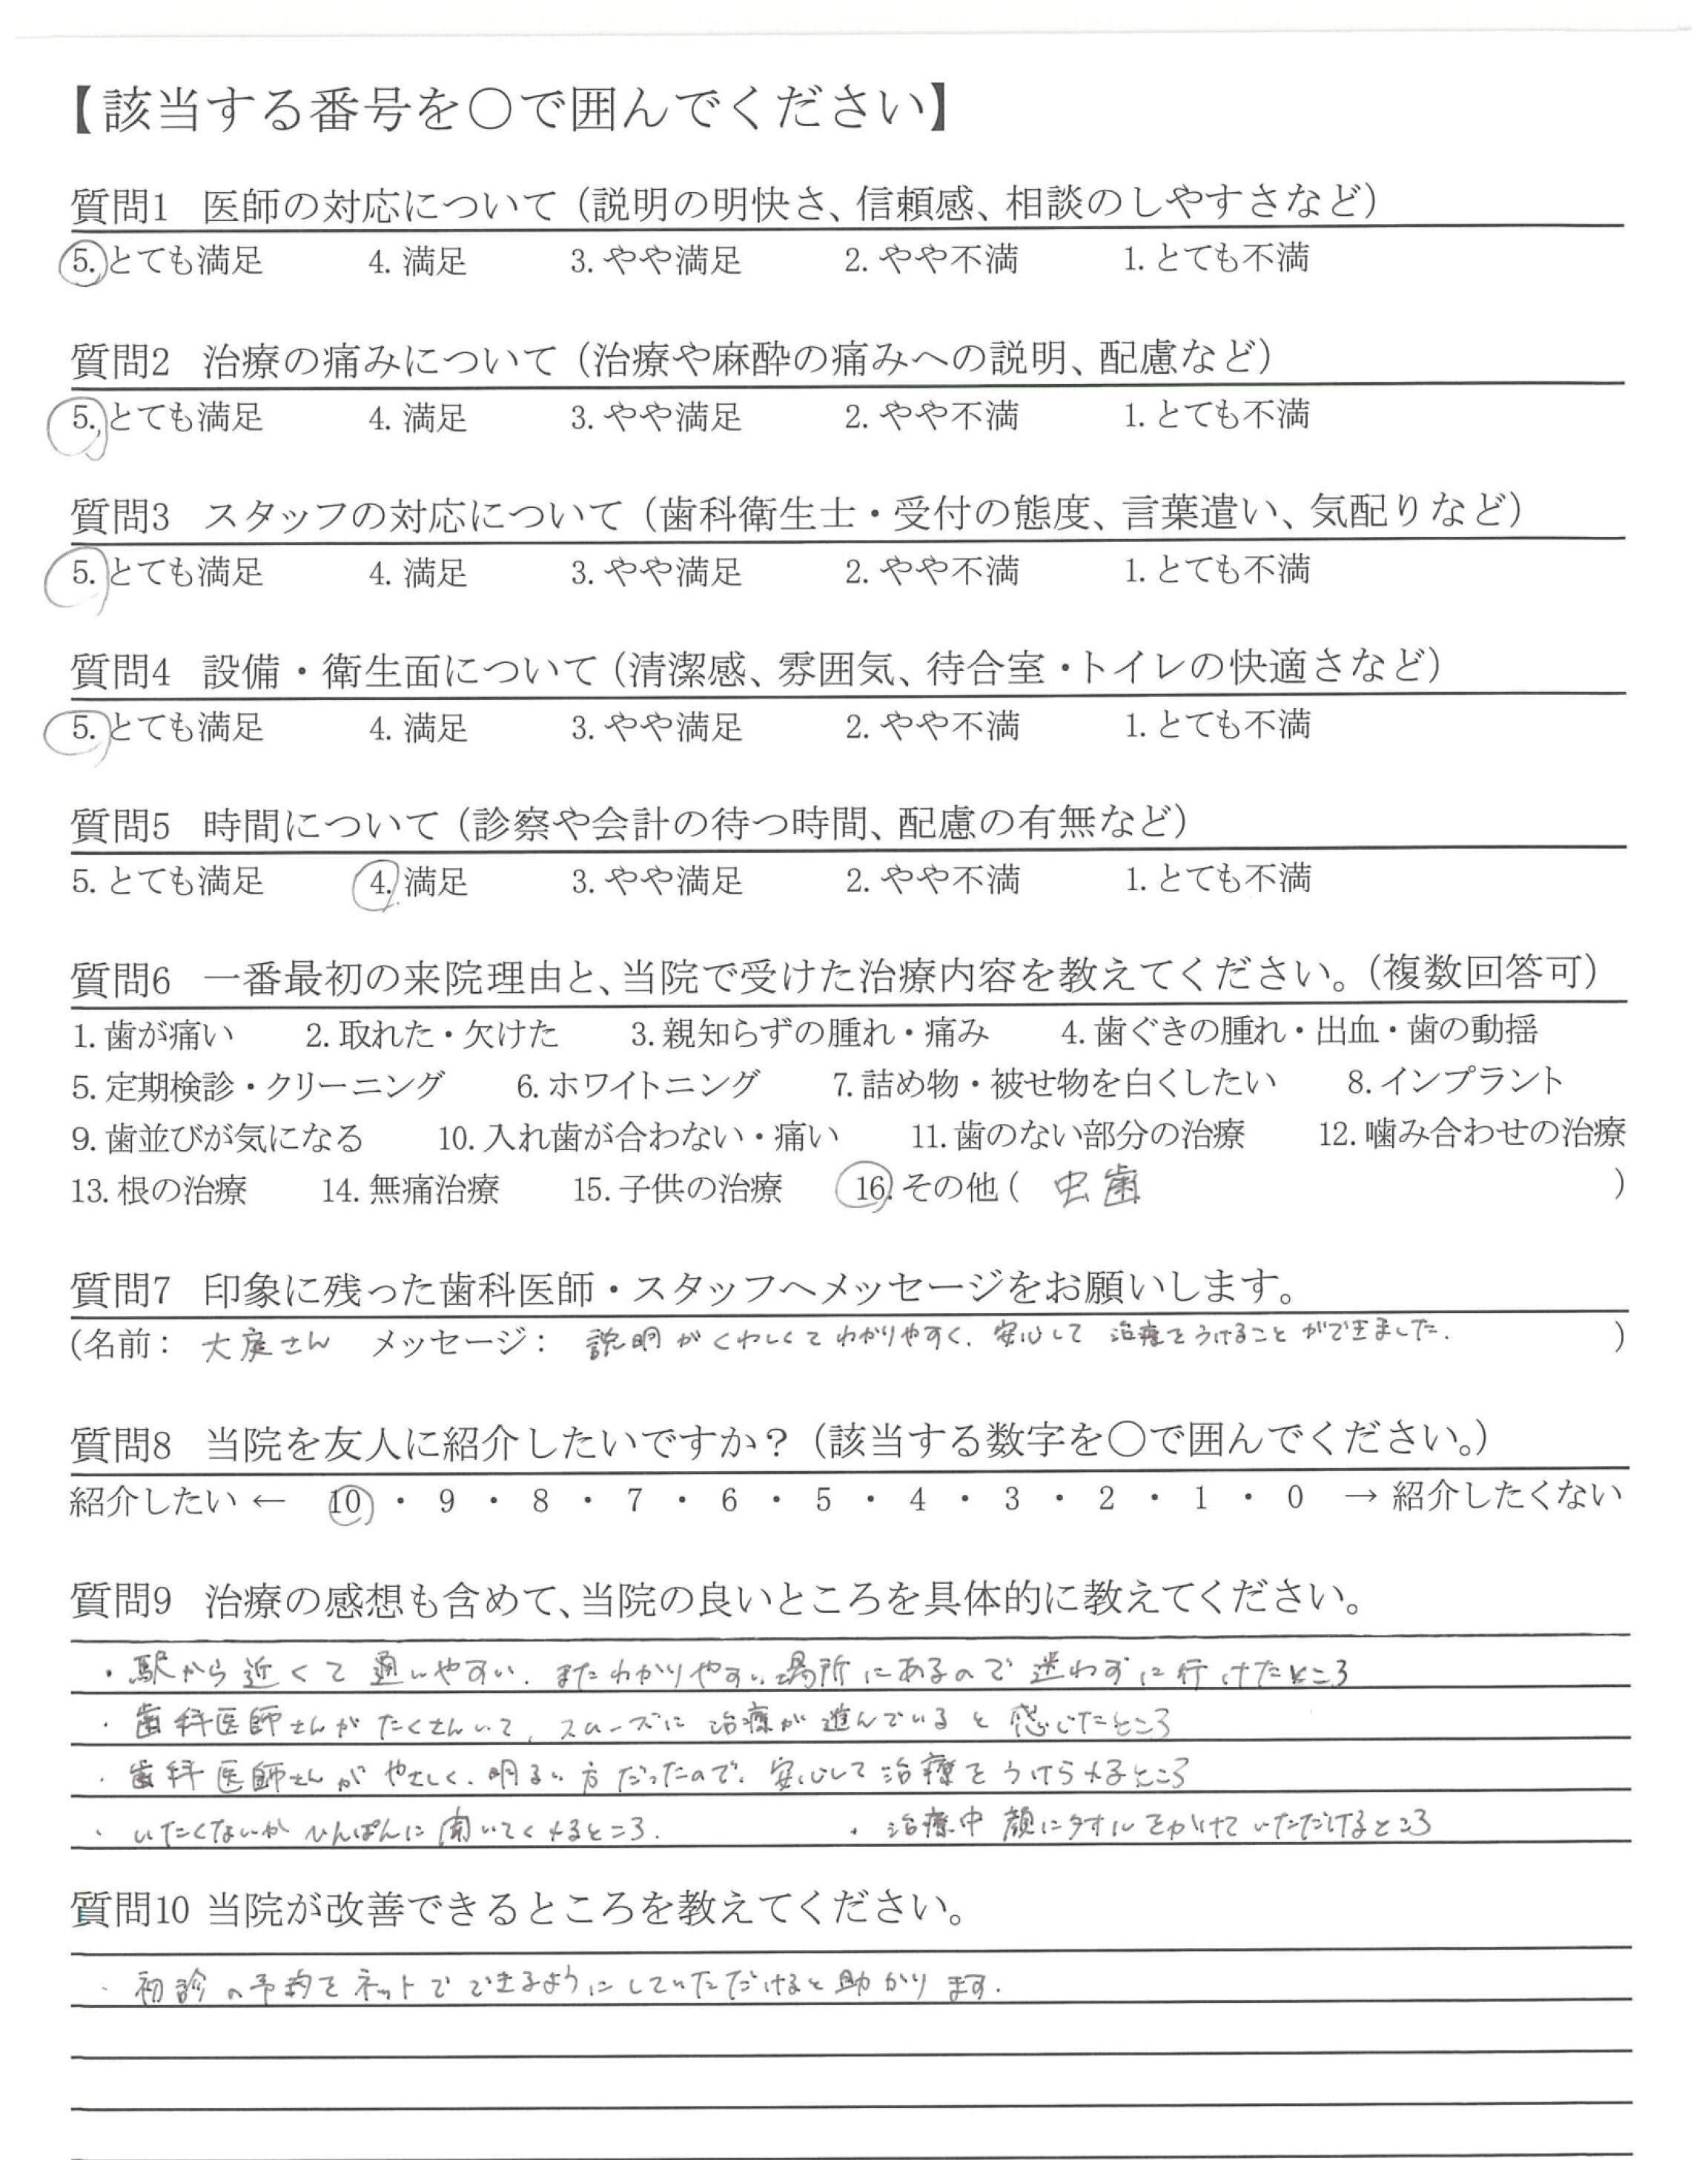 【該当する番号を○で囲んでください】
質問1 医師の対応について（説明の明快さ、信頼感、相談のしやすさなど）
5. とても満足 4. 満足 3. やや満足 2. やや不満 1. とても不満
質問2 治療の痛みについて（治療や麻酔の痛みへの説明、配慮など）
5. とても満足 4. 満足 3. やや満足 2. やや不満 1. とても不満
質問3 スタッフの対応について（歯科衛生士・受付の態度、言葉遣い、気配りなど）
5. とても満足 4. 満足 3. やや満足 2. やや不満 1. とても不満
質問4 設備・衛生面について（清潔感、雰囲気、待合室・トイレの快適さなど）
5. とても満足 4. 満足 3. やや満足 2. やや不満 1. とても不満
質問5 時間について（診察や会計の待つ時間、配慮の有無など）
5. とても満足 4. 満足 3. やや満足 2. やや不満 1. とても不満
質問6 一番最初の来院理由と、当院で受けた治療内容を教えてください。（複数回答可）
1. 歯が痛い 2. 取れた・欠けた 3. 親知らずの腫れ・痛み 4. 歯ぐきの腫れ・出血・歯の動揺
5. 定期検診・クリーニング 6. ホワイトニング 7. 詰め物・被せ物を白くしたい 8. インプラント
9. 歯並びが気になる 10. 入れ歯が合わない・痛い 11. 歯のない部分の治療 12. 噛み合わせの治療
13. 根の治療 14. 無痛治療 15. 子供の治療 16. その他（ 虫歯 ）
質問7 印象に残った歯科医師・スタッフへメッセージをお願いします。
(名前： 大庭さん メッセージ： 説明がくわしくてわかりやすく、安心して治療をうけることができました。 )
質問8 当院を友人に紹介したいですか？（該当する数字を○で囲んでください。）
紹介したい ← 10 ・ 9 ・ 8 ・ 7 ・ 6 ・ 5 ・ 4 ・ 3 ・ 2 ・ 1 ・ 0 → 紹介したくない
質問9 治療の感想も含めて、当院の良いところを具体的に教えてください。
・駅から近くて通いやすい、またわかりやすい場所にあるので迷わずに行けたところ
・歯科医師さんがたくさんいて、スムーズに治療が進んでいると感じたところ
・歯科医師さんがやさしく、明るい方だったので、安心して治療をうけられるところ
・いたくないかひんぱんに聞いてくれるところ。 ・治療中顔にタオルをかけていただけるところ
質問10 当院が改善できるところを教えてください。
・初診の予約をネットでできるようにしていただけると助かります。